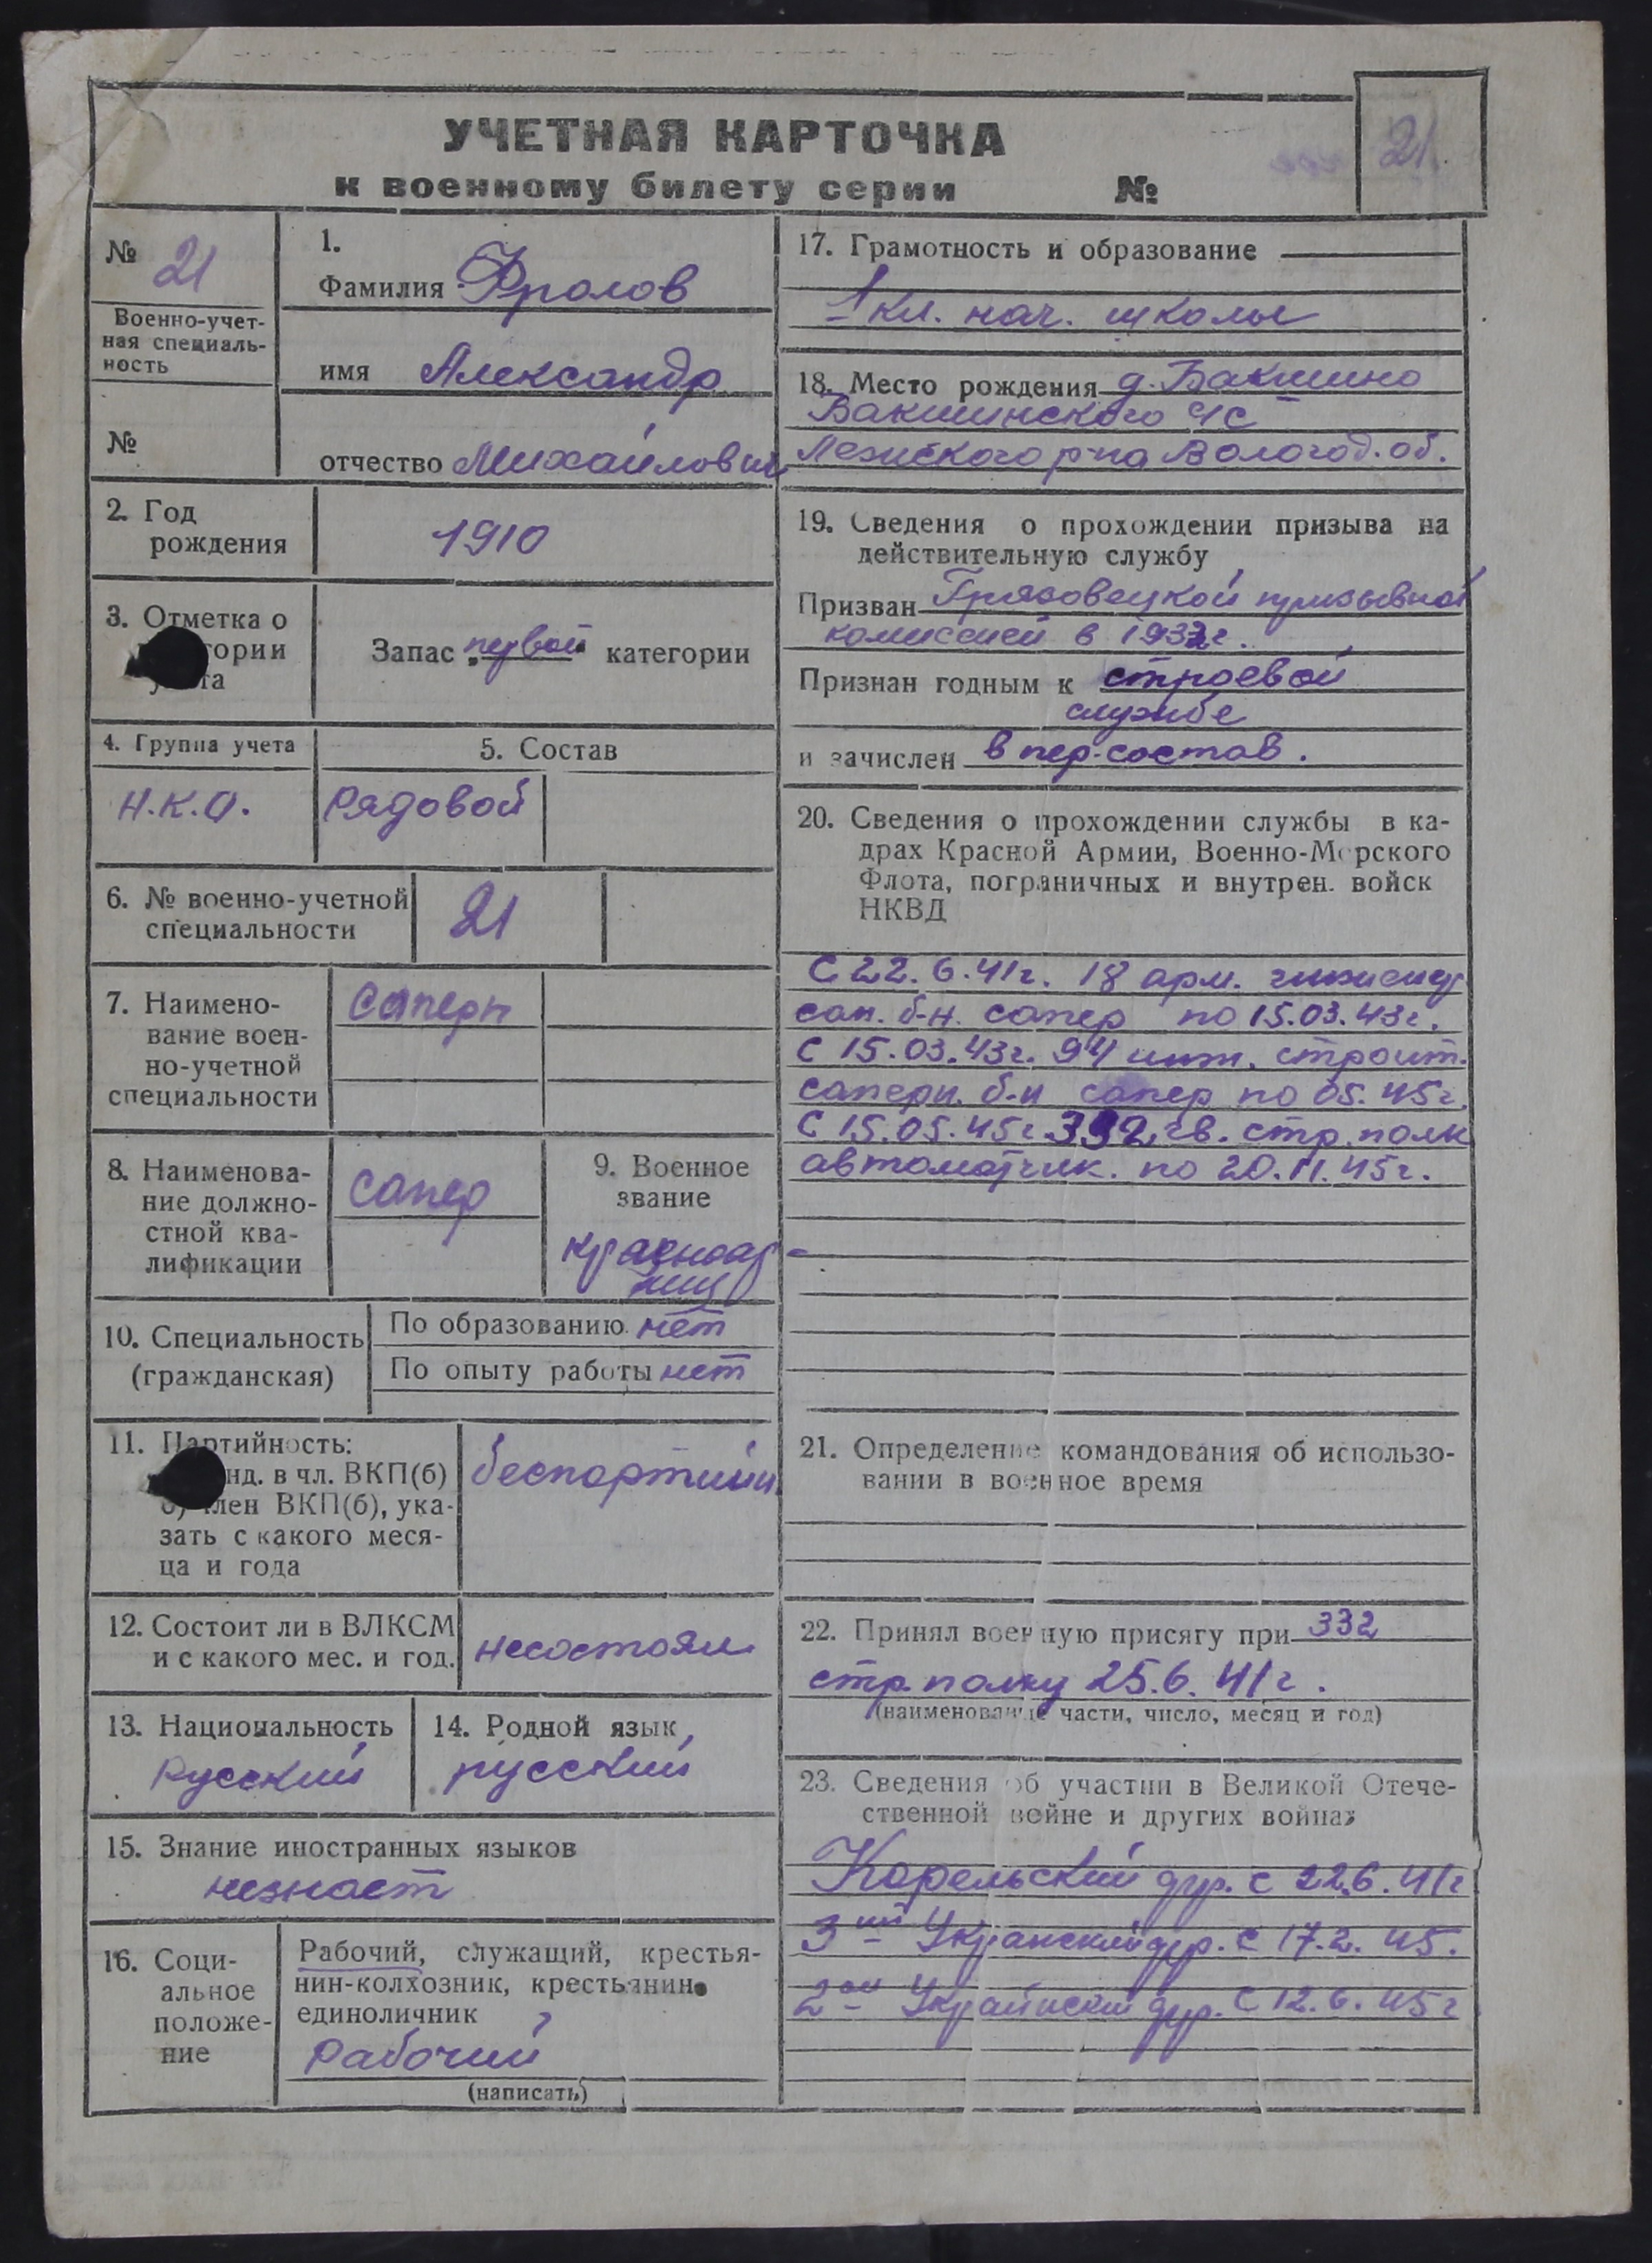 УЧЕТНАЯ КАРТОЧКА
к военному билету серии №
21
№ 21
Военно-учет-
ная специаль-
ность
№
1.
Фамилия Фролов
имя Александр
отчество Михайлович
2. Год
рождения
1910
3. Отметка о
Запас „первой“ категории
4. Группа учета
Н.К.О.
5. Состав
Рядовой
6. № военно-учетной
специальности
21
7. Наимено-
вание воен-
но-учетной
специальности
Саперн
8. Наименова-
ние должно-
стной ква-
лификации
Сапер
9. Военное
звание
красноар-
меец
10. Специальность
(гражданская)
По образованию нет
По опыту работы нет
11. Партийность:
нд. в чл. ВКП(б)
б) член ВКП(б), ука-
зать с какого меся-
ца и года
беспартийн
12. Состоит ли в ВЛКСМ
и с какого мес. и год.
несостоял
13. Национальность
Русский
14. Родной язык
русский
15. Знание иностранных языков
незнает
16. Соци-
альное
положе-
ние
Рабочий, служащий, крестья-
нин-колхозник, крестьянин-
единоличник
Рабочий
(написать)
17. Грамотность и образование
1 кл. нач. школы
18. Место рождения д. Бакшино
Бакшинского с/с
Лежского р-на Вологод. об.
19. Сведения о прохождении призыва на
действительную службу
Призван Грязовецкой призывной
комиссией в 1932г.
Признан годным к строевой
службе
и зачислен в пер. состав.
20. Сведения о прохождении службы в ка-
драх Красной Армии, Военно-Морского
Флота, пограничных и внутрен. войск
НКВД
С 22.6.41г. 18 арм.
сап. б-н. сапер по 15.03.43г.
С 15.03.43г. 94 инж. строит.
саперн. б-н сапер по 05.45г.
С 15.05.45г. 332 гв. стр. полк
автоматчик. по 20.11.45г.
21. Определение командования об использо-
вании в военное время
22. Принял военную присягу при 332
стр. полку 25.6.41г.
(наименование части, число, месяц и год)
23. Сведения об участии в Великой Отече-
ственной войне и других войнах
Карельский фр. с 22.6.41г
3ий Укранский фр. с 17.2.45.
2ой Украинский фр. с 12.6.45г